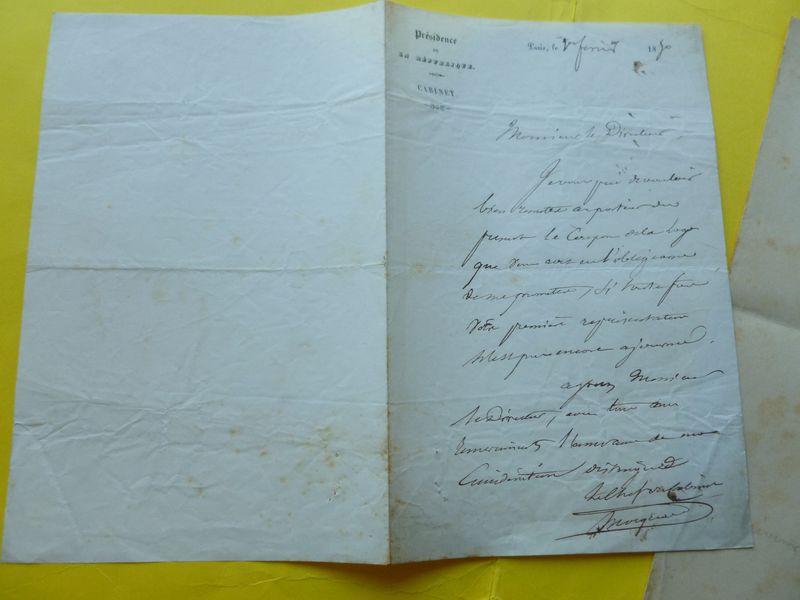 Présidence
DE
LA RÉPUBLIQUE.
CABINET.
Paris, le 1er février 1850
Monsieur le Directeur
Je vous prie de vouloir
bien remettre au porteur du
présent le Coupon de la Loge
que vous avez eu l'obligeance
de me promettre, si toutefois
votre première représentation
n'est pas encore ajournée.
agréez Monsieur
le Directeur, avec tous mes
remerciements l'assurance de ma
Considération distinguée
le Chef du Cabinet